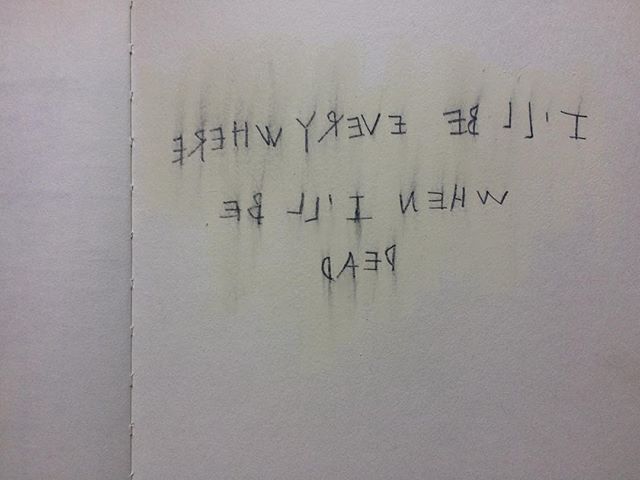 I'LL BE EVERYWHERE
WHEN I'LL BE
DEAD